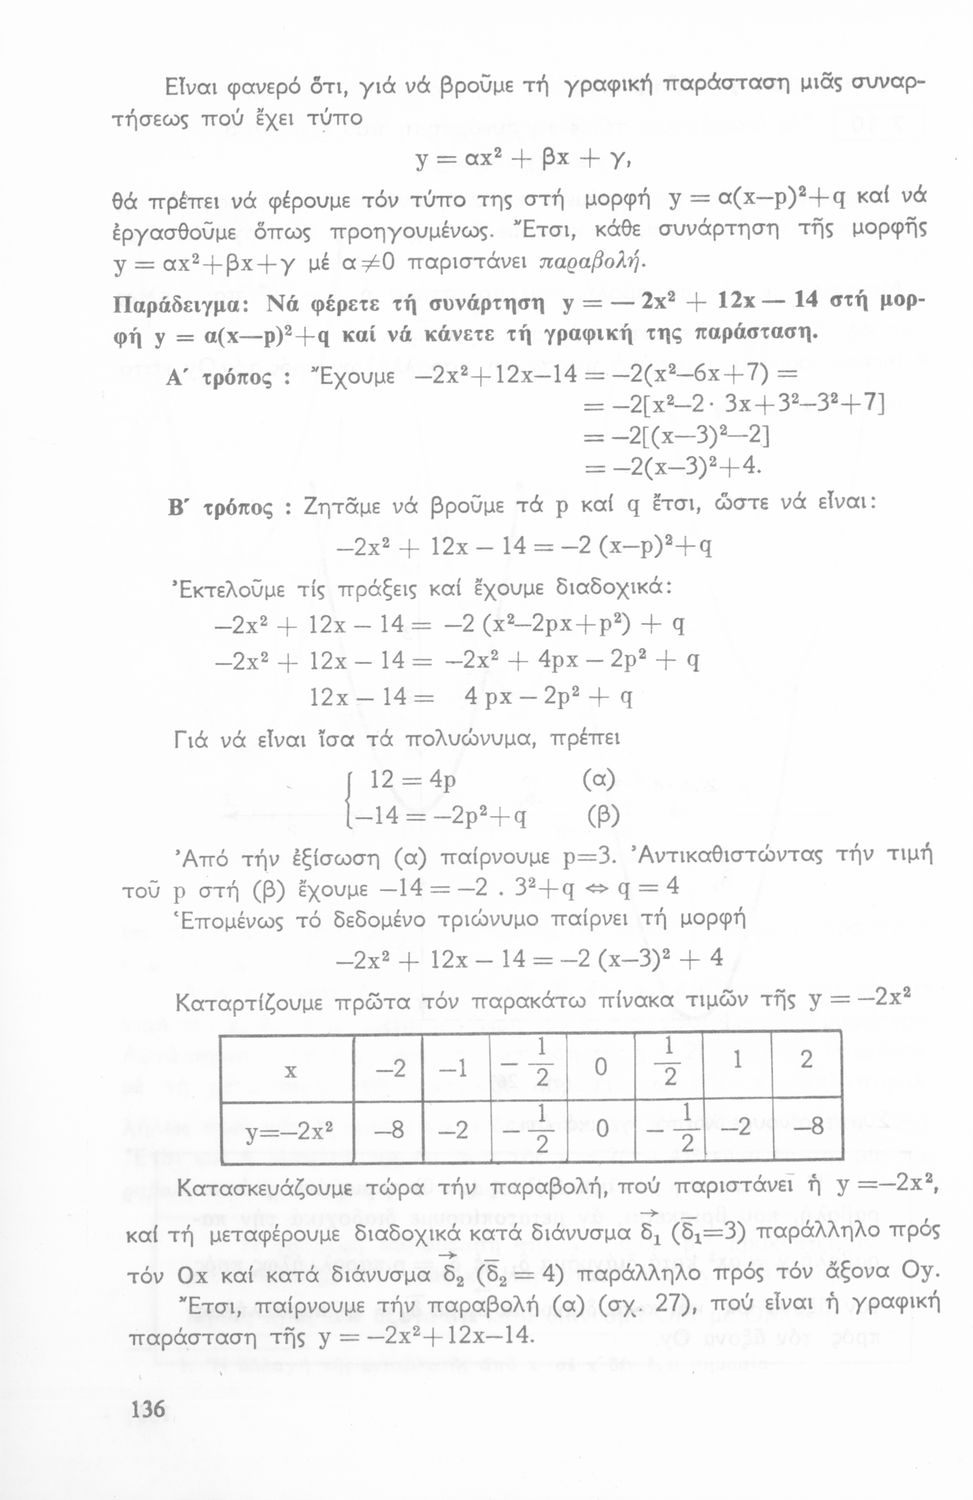 Εἶναι φανερό ὅτι, γιά νά βροῦμε τή γραφική παράσταση μιᾶς συναρ-
τήσεως πού ἔχει τύπο
y = αx² + βx + γ,
θά πρέπει νά φέρουμε τόν τύπο της στή μορφή y = α(x–p)²+q καί νά
ἐργασθοῦμε ὅπως προηγουμένως. Ἔτσι, κάθε συνάρτηση τῆς μορφῆς
y = αx²+βx+γ μέ α≠0 παριστάνει παραβολή.
Παράδειγμα: Νά φέρετε τή συνάρτηση y = — 2x² + 12x — 14 στή μορ-
φή y = α(x—p)²+q καί νά κάνετε τή γραφική της παράσταση.
Α′ τρόπος : Ἔχουμε –2x²+12x–14 = –2(x²–6x+7) =
= –2[x²–2· 3x+3²–3²+7]
= –2[(x–3)²–2]
= –2(x–3)²+4.
Β′ τρόπος : Ζητᾶμε νά βροῦμε τά p καί q ἔτσι, ὥστε νά εἶναι:
–2x² + 12x – 14 = –2 (x–p)²+q
Ἐκτελοῦμε τίς πράξεις καί ἔχουμε διαδοχικά:
–2x² + 12x – 14 = –2 (x²–2px+p²) + q
–2x² + 12x – 14 = –2x² + 4px – 2p² + q
12x – 14 = 4 px – 2p² + q
Γιά νά εἶναι ἴσα τά πολυώνυμα, πρέπει
{ 12 = 4p (α)
–14 = –2p²+q (β)
Ἀπό τήν ἐξίσωση (α) παίρνουμε p=3. Ἀντικαθιστώντας τήν τιμή
τοῦ p στή (β) ἔχουμε –14 = –2 . 3²+q ⇔ q = 4
Ἑπομένως τό δεδομένο τριώνυμο παίρνει τή μορφή
–2x² + 12x – 14 = –2 (x–3)² + 4
Καταρτίζουμε πρῶτα τόν παρακάτω πίνακα τιμῶν τῆς y = –2x²
x –2 –1 –1/2 0 1/2 1 2
y=–2x² –8 –2 –1/2 0 –1/2 –2 –8
Κατασκευάζουμε τώρα τήν παραβολή, πού παριστάνει ἡ y =–2x²,
καί τή μεταφέρουμε διαδοχικά κατά διάνυσμα δ⃗₁ (δ̅₁=3) παράλληλο πρός
τόν Ox καί κατά διάνυσμα δ⃗₂ (δ̅₂ = 4) παράλληλο πρός τόν ἄξονα Oy.
Ἔτσι, παίρνουμε τήν παραβολή (α) (σχ. 27), πού εἶναι ἡ γραφική
παράσταση τῆς y = –2x²+12x–14.
136